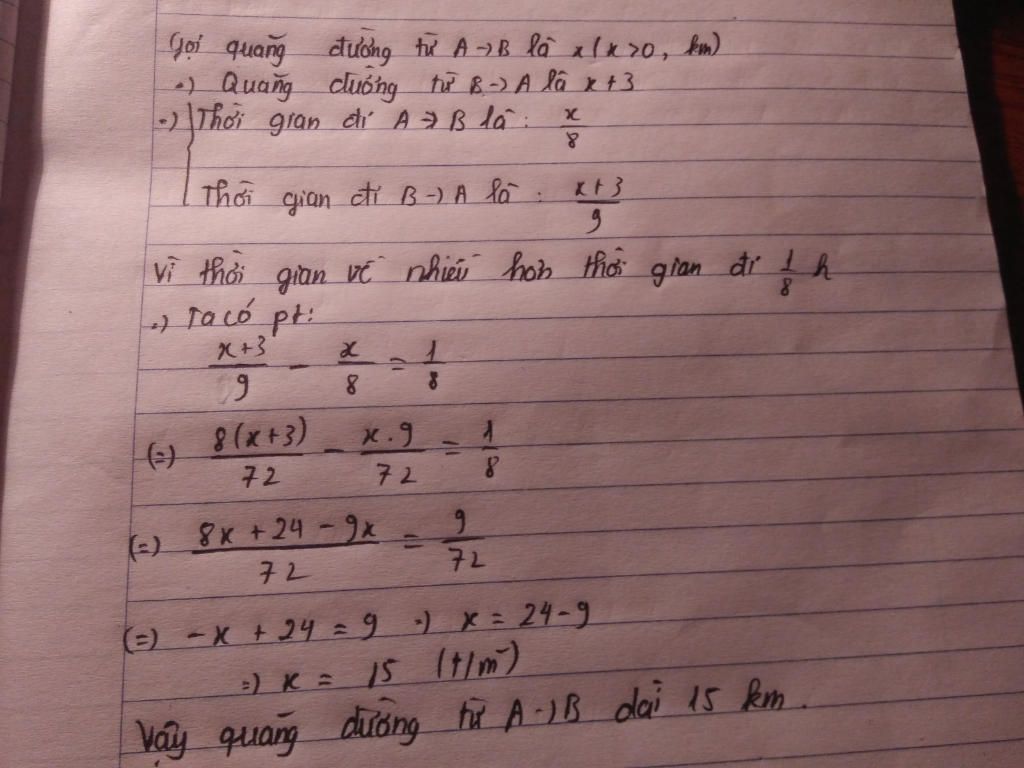 Gọi quãng đường từ A → B là x (x > 0, km)
=) Quãng đường từ B → A là x + 3
=) { Thời gian đi A → B là : x/8
Thời gian đi B → A là : (x+3)/9
Vì thời gian về nhiều hơn thời gian đi 1/8 h
=) Ta có pt:
(x+3)/9 - x/8 = 1/8
(=) 8(x+3)/72 - x.9/72 = 1/8
(=) (8x + 24 - 9x)/72 = 9/72
(=) -x + 24 = 9 =) x = 24 - 9
=) x = 15 (t/m)
Vậy quãng đường từ A → B dài 15 km.